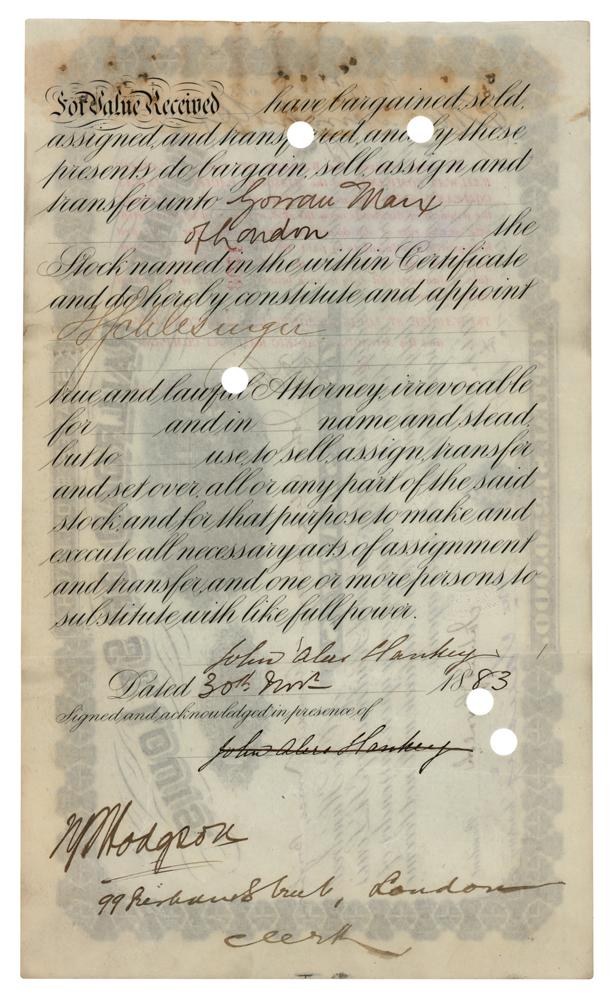 For Value Received have bargained, sold,
assigned, and transferred, and by these
presents do bargain, sell, assign and
transfer unto Gowan Marx
of London the
Stock named in the within Certificate
and do hereby constitute and appoint
Schlesinger
true and lawful Attorney, irrevocable
for and in name and stead,
but to use, to sell, assign, transfer
and set over, all or any part of the said
stock, and for that purpose to make and
execute all necessary acts of assignment
and transfer, and one or more persons, to
substitute with like full power.
John Alers Hankey
Dated 30th Novr 1883
Signed and acknowledged in presence of
John Alers Hankey
Hodgson
99 Street, London
Clerk